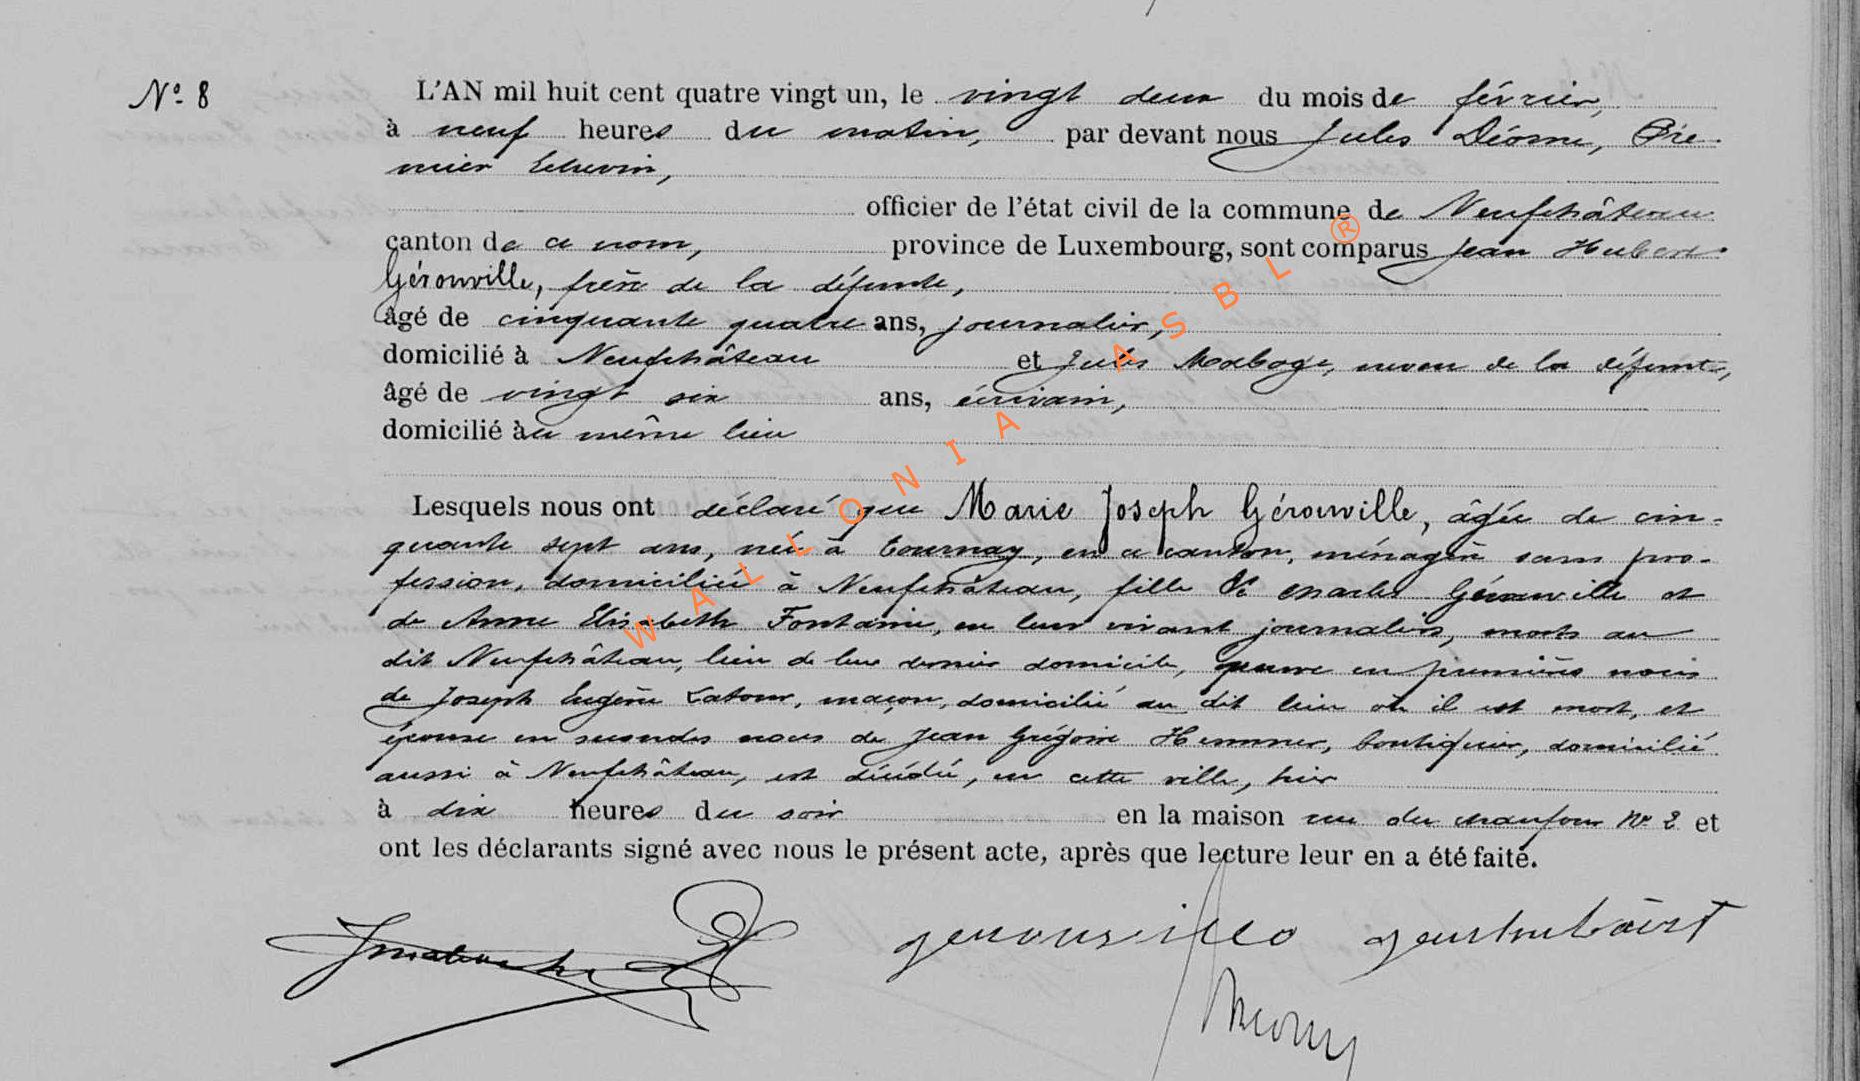 N° 8
L'AN mil huit cent quatre vingt un, le vingt deux du mois de février,
à neuf heures du matin, par devant nous Jules Déome, Pre-
mier Echevin,
officier de l'état civil de la commune de Neufchâteau
canton de ce nom, province de Luxembourg, sont comparus Jean Hubert
Gérouville, frère de la défunte,
âgé de cinquante quatre ans, journalier,
domicilié à Neufchâteau et Jules Maboge, neveu de la défunte,
âgé de vingt six ans, écrivain,
domicilié au même lieu
Lesquels nous ont déclaré que Marie Joseph Gérouville, âgée de cin-
quante sept ans, née à Tournay, en ce canton, ménagère sans pro-
fession, domiciliée à Neufchâteau, fille de Charles Gérouville et
de Anne Elisabeth Fontaine, en leur vivant journaliers, morts au
dit Neufchâteau, lieu de leur dernier domicile, veuve en premières noces
de Joseph Eugène Latour, maçon, domicilié au dit lieu où il est mort, et
épouse en secondes noces de Jean Grégoire Hemmer, boutiquier, domicilié
aussi à Neufchâteau, est décédée, en cette ville, hier
à dix heures du soir en la maison rue du Chaufour N° 2 et
ont les déclarants signé avec nous le présent acte, après que lecture leur en a été faite.
gerouvillo jeanhubairt
WALLONIA ASBL ®